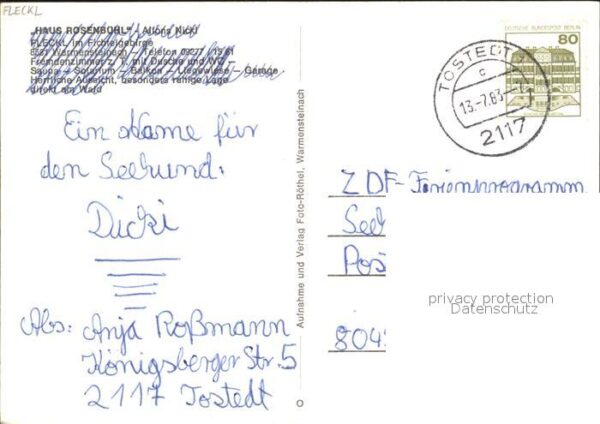 FLECKL
„HAUS ROSENBÜHL" - Alfons Nickl
FLECKL im Fichtelgebirge
8581 Warmensteinach – Telefon 09277 / 1581
Fremdenzimmer z. T. mit Dusche und WC
Sauna – Solarium – Balkon – Liegewiese – Garage
Herrliche Aussicht, besonders ruhige Lage
direkt am Wald
DEUTSCHE BUNDESPOST BERLIN
80
TOSTEDT 1
c
13.-7.83
2117
Ein Name für
den Seehund:
Dicki
Abs: Anja Roßmann
Königsberger Str. 5
2117 Tostedt
Aufnahme und Verlag Foto-Röthel, Warmensteinach
ZDF-Ferienprogramm
See
Pos
804
privacy protection
Datenschutz